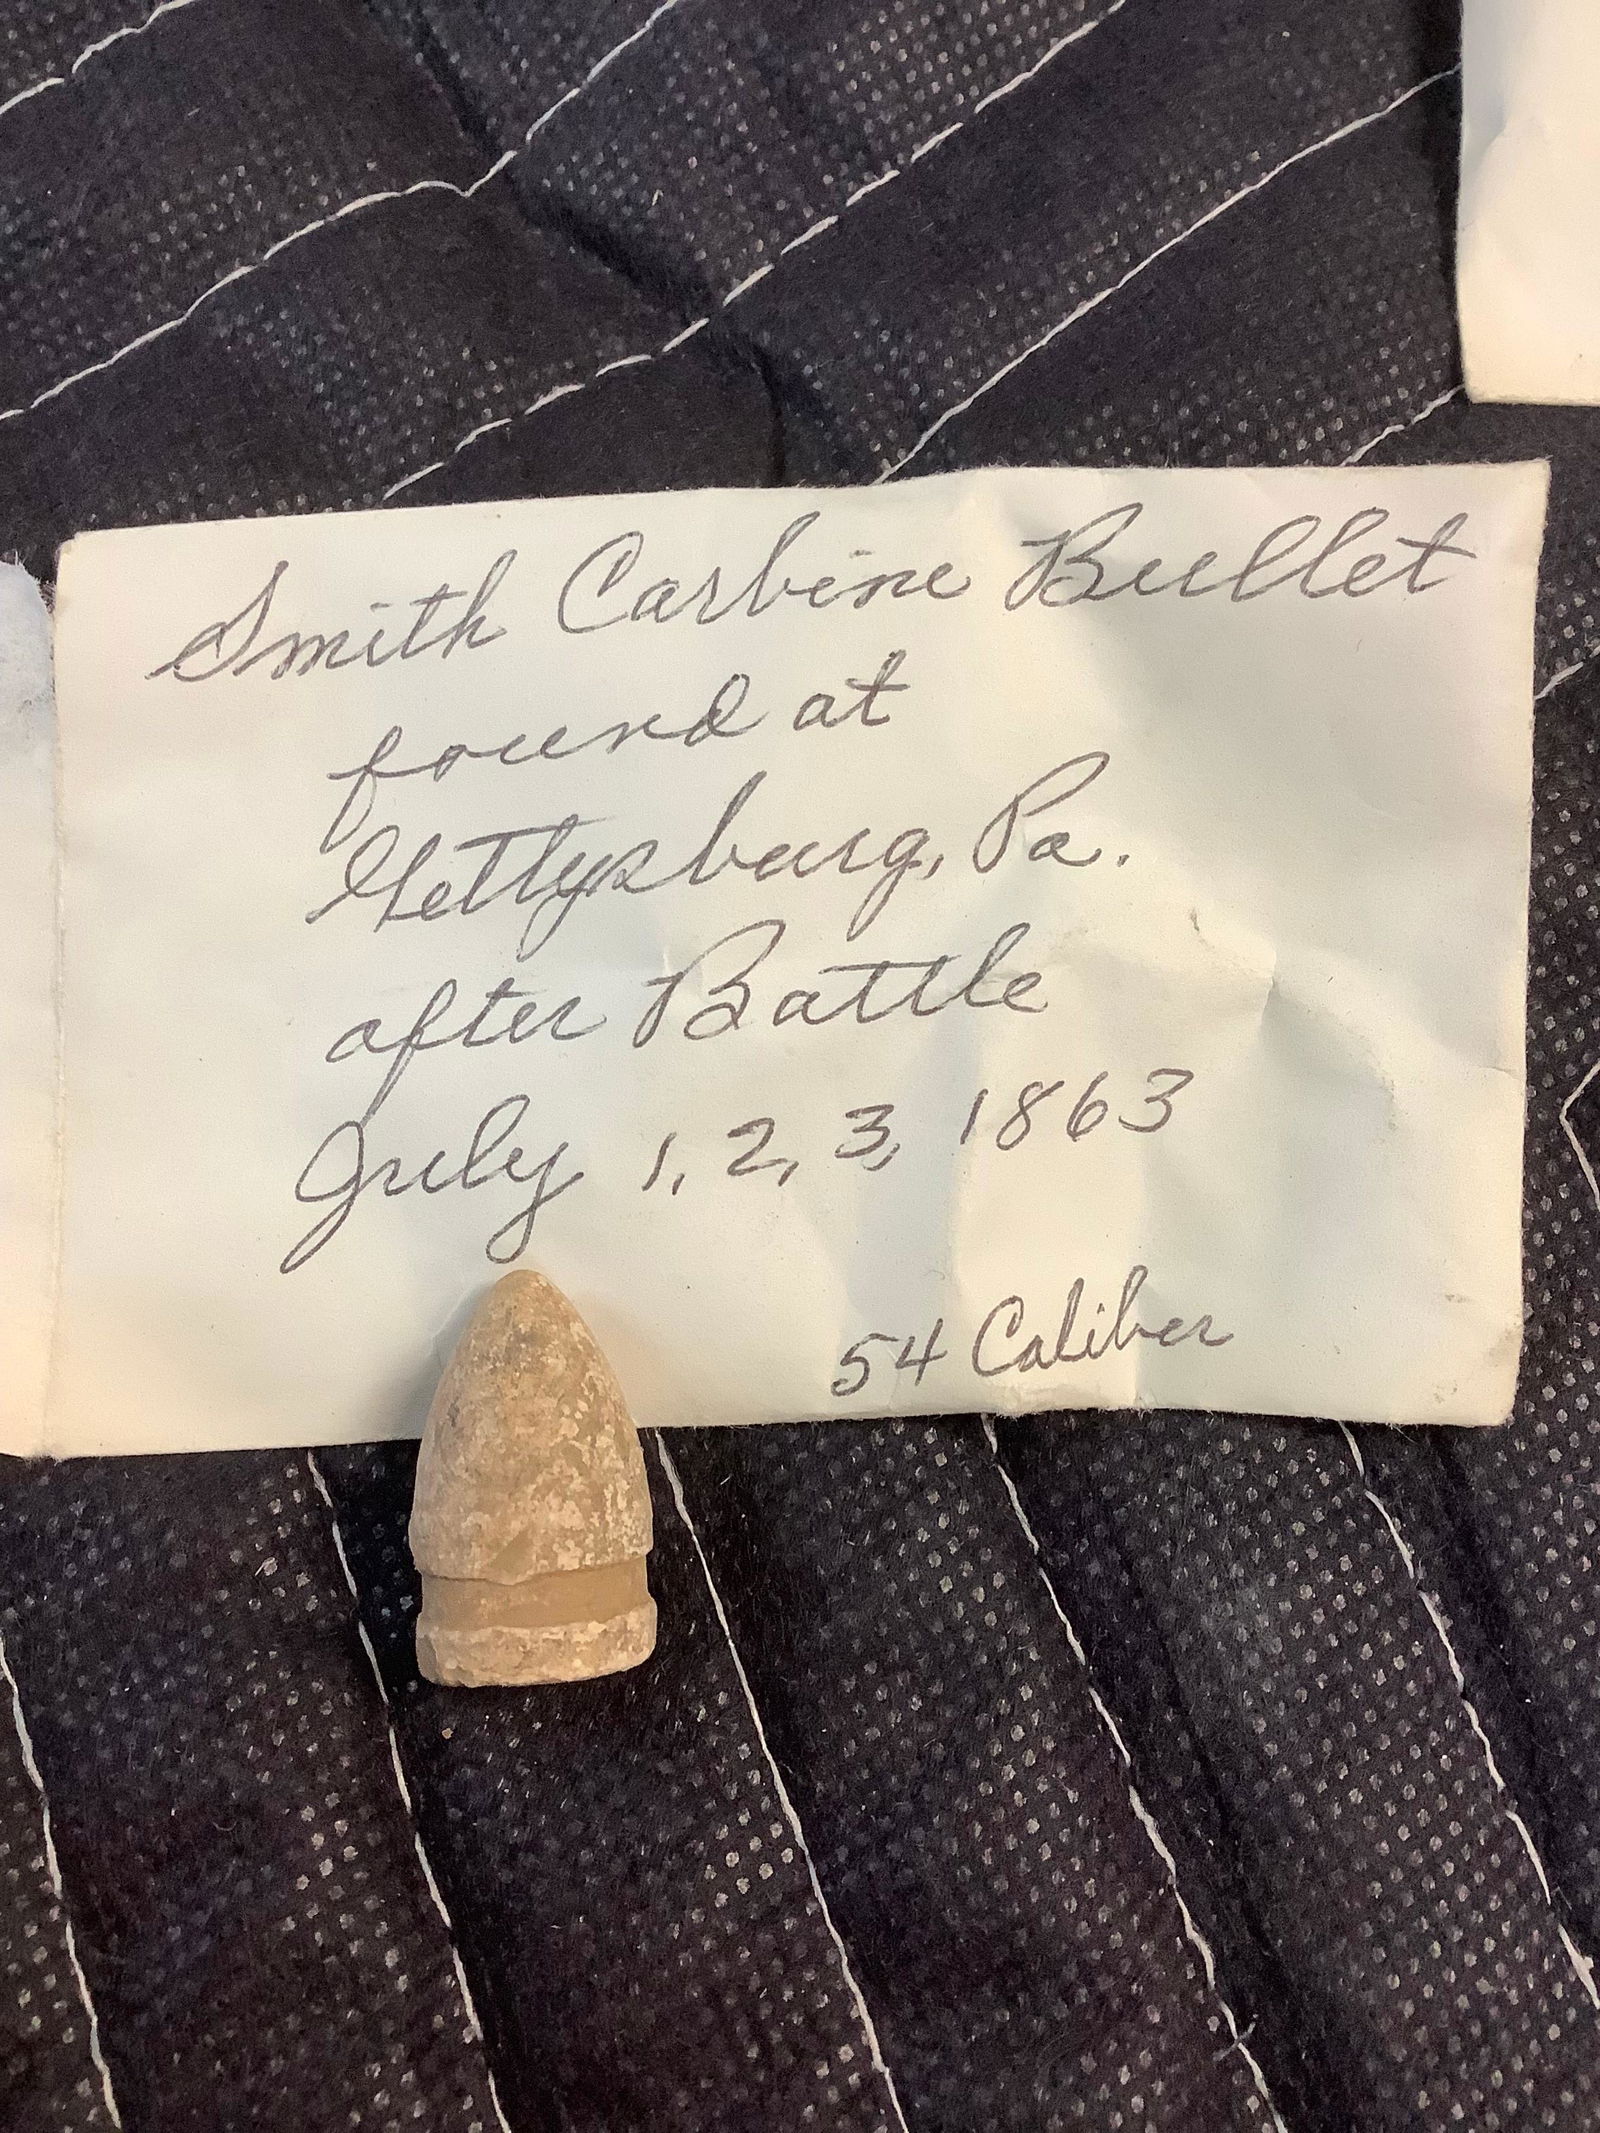 Smith Carbine Bullet
found at
Gettysburg, Pa.
after Battle
July 1, 2, 3, 1863
54 Caliber